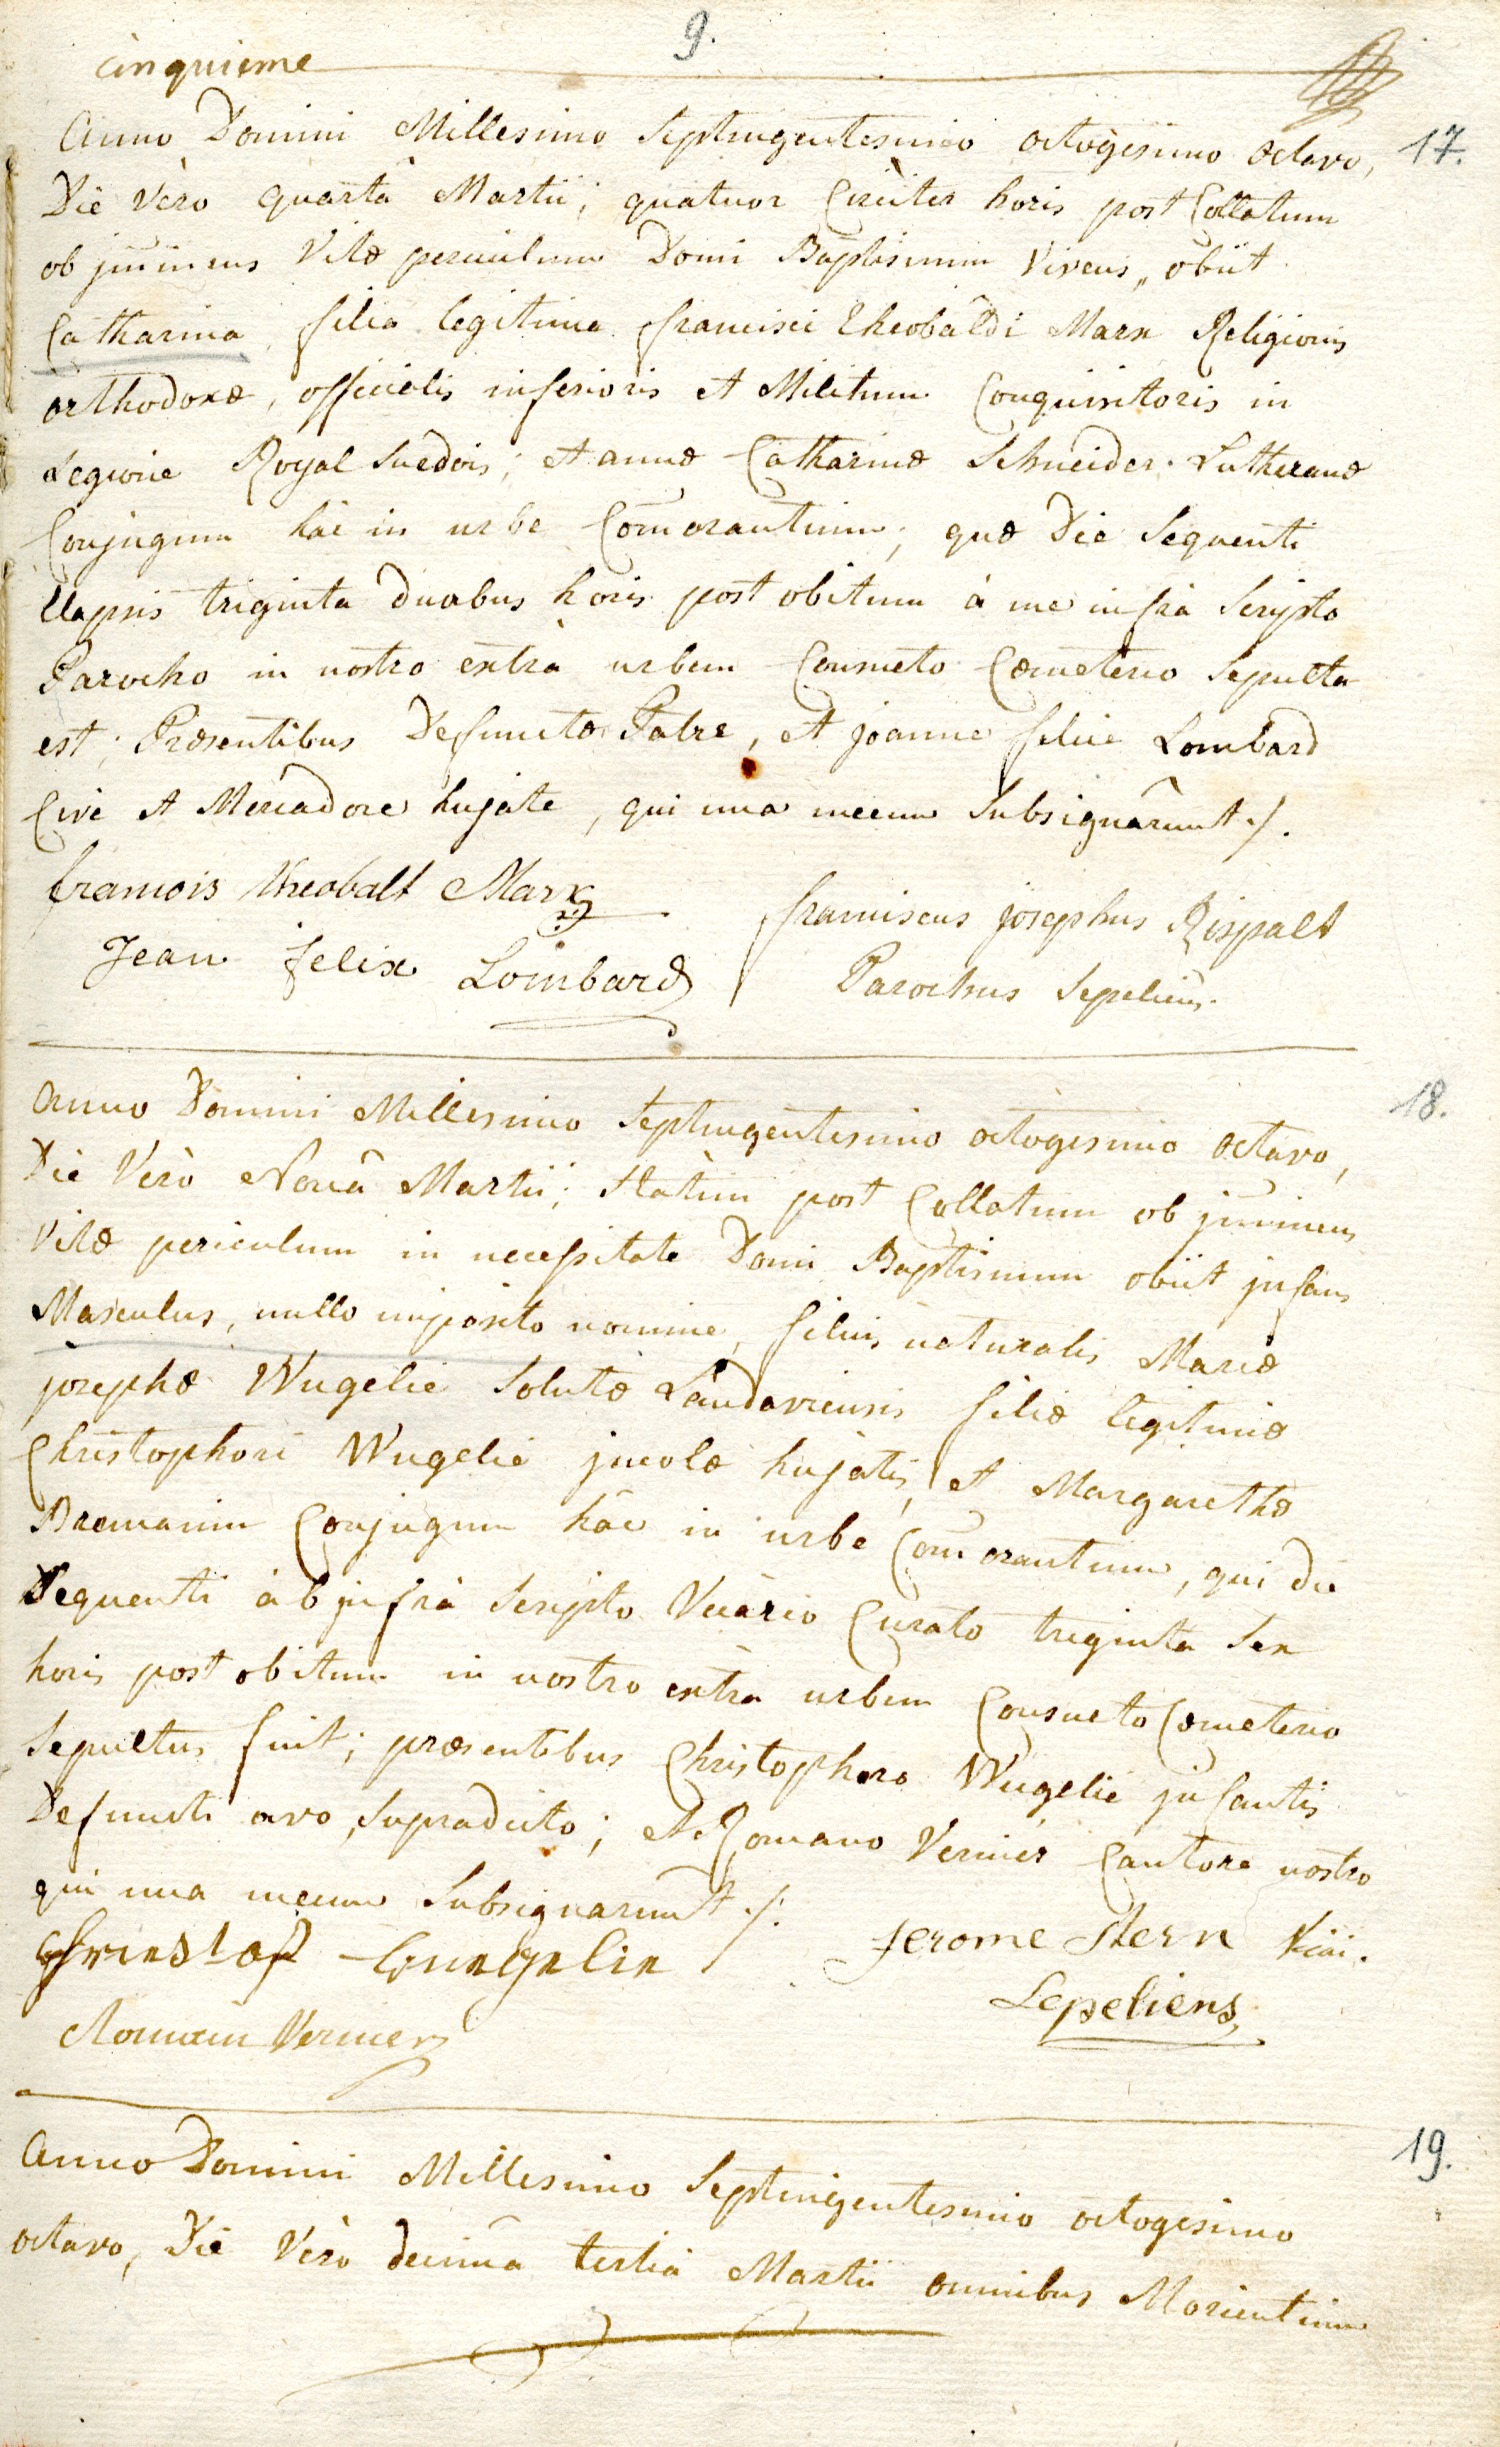 9.
cinquieme
Anno Domini Millesimo Septingentesimo octogesimo octavo, 17.
Die Vero quartâ Martii, quatuor Circiter horis post Collatum
ob jm̄inens Vitæ periculum Domi Baptismum Vivens, obiit
Catharina filia legitima francisci Theobaldi Marx Religionis
orthodoxæ, officialis inferioris et Militum Conquisitoris in
Legione Royal Suedois; et annæ Catharinæ Schneider Lutheranæ
Conjugum hâc in urbe Com̄orantium; quæ Die Sequenti
Elapsis triginta duabus horis post obitum à me infrà Scripto
Parocho in nostro extrà urbem Consueto Cœmeterio Sepulta
est; Præsentibus Defunctæ Patre, et joanne felice Lombard
Cive et Mercadore hujate, qui una mecum Subsignârunt ./.
francois theobalt Marx
franciscus josephus Rispalt
Jean felix Lombard
Parochus Sepeliens.
Anno Domini Millesimo Septingentesimo octogesimo octavo, 18.
Die Verò Nonâ Martii; Statim post Collatum ob jm̄inens
Vitæ periculum in necessitate Domi Baptismum obiit jnfans
Masculus, nullo imposito nomine, filius naturalis Mariæ
josephæ Wugelie Solutæ Landaviensis filiæ legitimæ
Christophori Wugelie jncolæ hujatis, et Margarethæ
Bremanin Conjugum hâc in urbe Com̄orantium, qui die
Sequenti ab jnfrà Scripto Vicario Curato triginta Sex
horis post obitum in nostro extra urbem Consueto Cœmeterio
Sepultus fuit; præsentibus Christophoro Wugelie jnfantis
Defuncti avo, Supradicto; et Romano Vernier Cantore nostro
qui una mecum Subsignarunt ./.
Jerome Stern Vicar.
Sepeliens
Romain Vernier
19.
Anno Domini Millesimo Septingentesimo octogesimo
octavo, Die Verò decimâ tertiâ Martii omnibus Morientium